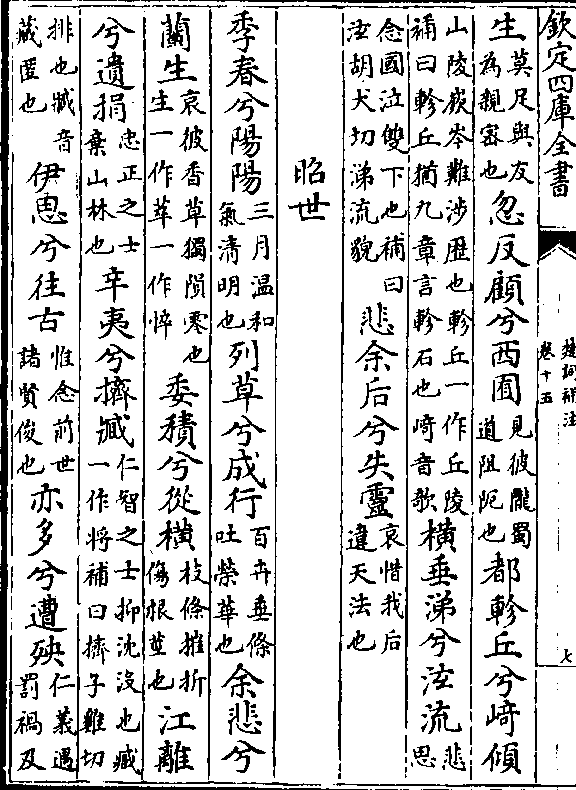 欽定四庫全書
楚詞補注
卷十五
七
生莫足與友為親密也忽反顧兮西囿見彼隴蜀道阻阨也都軫丘兮崎傾
山陵嶔岑難涉歴也軫丘一作丘陵補曰軫丘猶九章言軫石也崎音欹橫垂涕兮泫流悲思
念國泣雙下也補曰泫胡犬切涕流貌悲余后兮失靈哀惜我后違天法也
昭世
季春兮陽陽三月温和氣清明也列草兮成行百卉垂條吐榮華也余悲兮
蘭生哀彼香草獨隕零也生一作萃一作悴委積兮從橫枝條摧折傷根莖也江離
兮遺捐忠正之士棄山林也辛夷兮擠臧仁智之士抑沈没也臧一作将補曰擠子雞切
排也臧音藏匿也伊思兮往古惟念前世諸賢俊也亦多兮遭殃仁義遇罰禍及